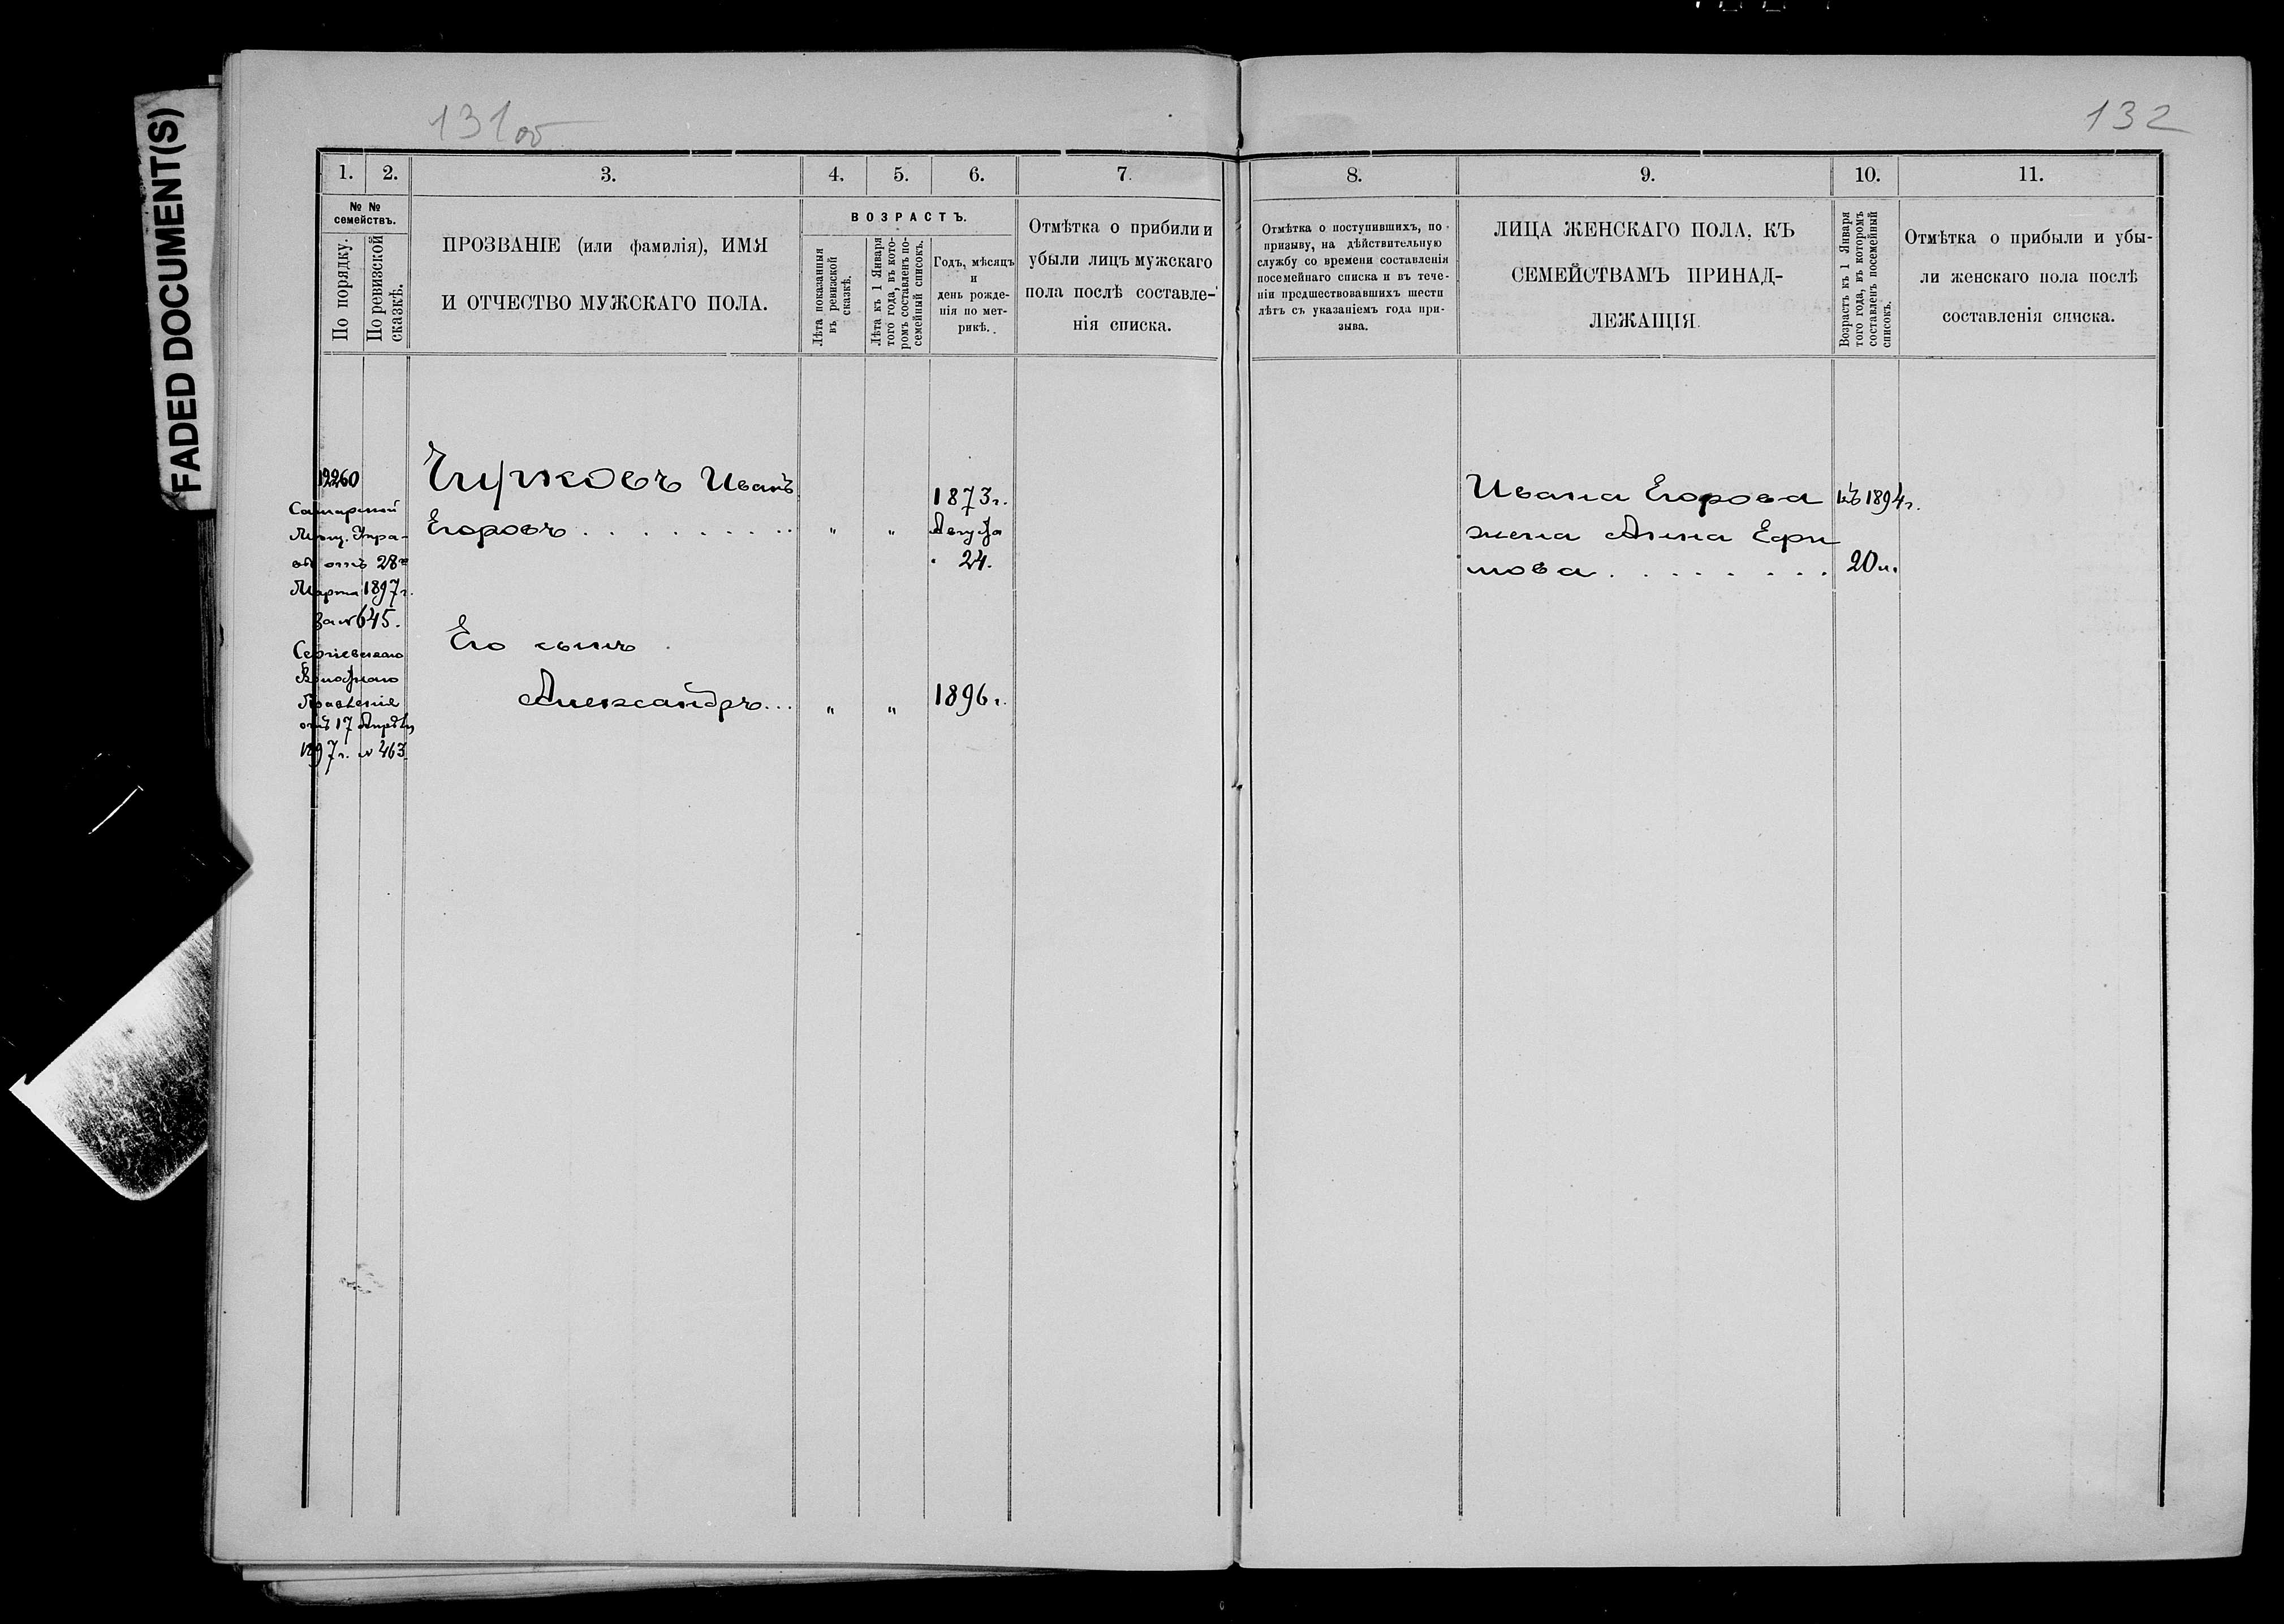 FADED DOCUMENT(S)
131об
132
1.
2.
3.
4.
5.
6.
7.
8.
9.
10.
11.
№ №
семействъ.
По порядку.
По ревизской
сказкѣ.
ПРОЗВАНІЕ (или фамилія), ИМЯ
И ОТЧЕСТВО МУЖСКАГО ПОЛА.
ВОЗРАСТЪ.
Лѣта показанныя
въ ревизской
сказкѣ.
Лѣта къ 1 Января
того года, въ кото-
ромъ составленъ по-
семейный списокъ.
Годъ, мѣсяцъ
и
день рожде-
нія по мет-
рикѣ.
Отмѣтка о прибили и
убыли лицъ мужскаго
пола послѣ составле-
нія списка.
Отмѣтка о поступившихъ, по
призыву, на дѣйствительную
службу со времени составленія
посемейнаго списка и въ тече-
ніи предшествовавшихъ шести
лѣтъ съ указаніемъ года при-
зыва.
ЛИЦА ЖЕНСКАГО ПОЛА, КЪ
СЕМЕЙСТВАМЪ ПРИНАД-
ЛЕЖАЩІЯ.
Возрастъ къ 1 Января
того года, въ которомъ
составленъ посемейный
списокъ.
Отмѣтка о прибыли и убы-
ли женскаго пола послѣ
составленія списка.
12260
Самарской
Мѣщ. Упра-
вы отъ 28го
Марта 1897 г.
за № 645.
Сергіевскаго
Волостнаго
Правленія
отъ 17 Апрѣля
1897 г. № 463
Чирковъ Иванъ
Егоровъ . . . . . . . . . „ „
1873 г.
Августа
24.
Его сынъ
Александръ... „ „ 1896 г.
Ивана Егорова
жена Анна Ефи
мова . . . . . . . .
къ 1894 г.
20 л.